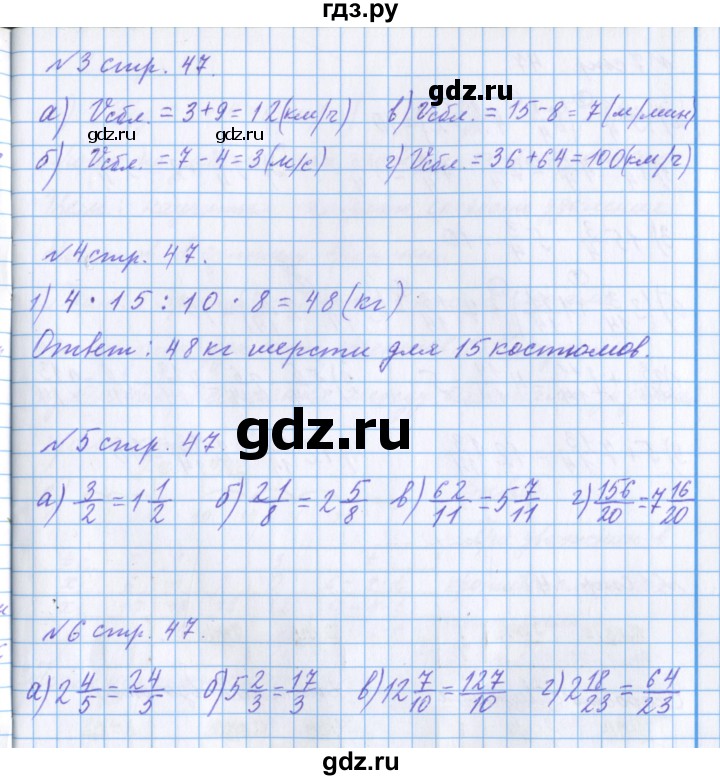 гдз.ру
№3 стр. 47.
а) Vсбл. = 3+9=12(км/ч) в) Vсбл. = 15-8=7(м/мин)
gdz.ru
gdz.ru gdz.ru
б) Vсбл. = 7-4=3(м/с) г) Vсбл. = 36+64=100(км/ч)
№4 стр. 47.
1) 4 · 15 : 10 · 8 = 48(кг)
Ответ: 48 кг шерсти для 15 костюмов.
gdz.ru
№5 стр. 47
а) 3/2 = 1 1/2 б) 21/8 = 2 5/8 в) 62/11 = 5 7/11 г) 156/20 = 7 16/20
№6 стр. 47.
а) 2 4/5 = 24/5 б) 5 2/3 = 17/3 в) 12 7/10 = 127/10 г) 2 18/23 = 64/23
gdz.ru